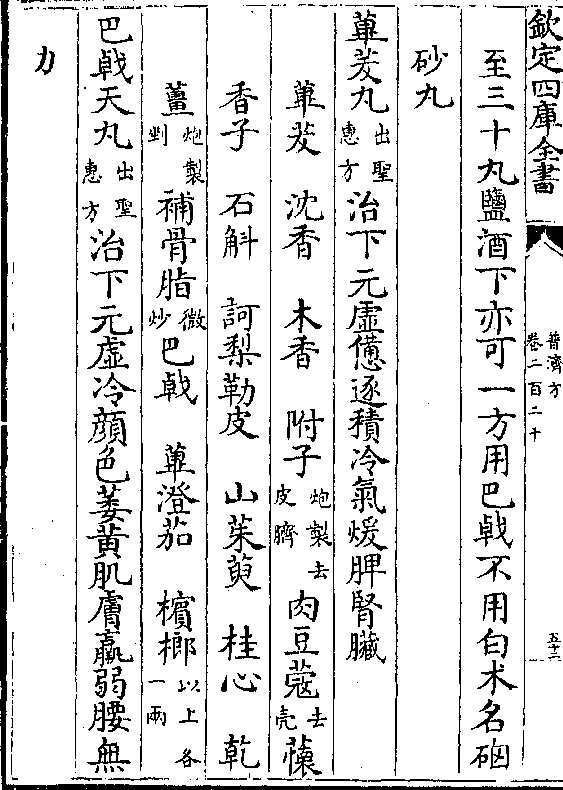 欽定四庫全書
普濟方
卷二百二十
五十二
至三十丸鹽酒下亦可一方用巴戟不用白术名硇
砂丸
蓽茇丸出聖惠方治下元虛憊逐積冷氣煖脾腎臟
蓽茇 沈香 木香 附子炮製去皮臍 肉豆蔻去壳 蘹
香子 石斛 訶梨勒皮 山茱萸 桂心 乾
薑炮製剉 補骨脂微炒 巴戟 蓽澄茄 檳榔以上各一兩
巴戟天丸出聖惠方治下元虛冷顔色萎黄肌膚羸弱腰無
力